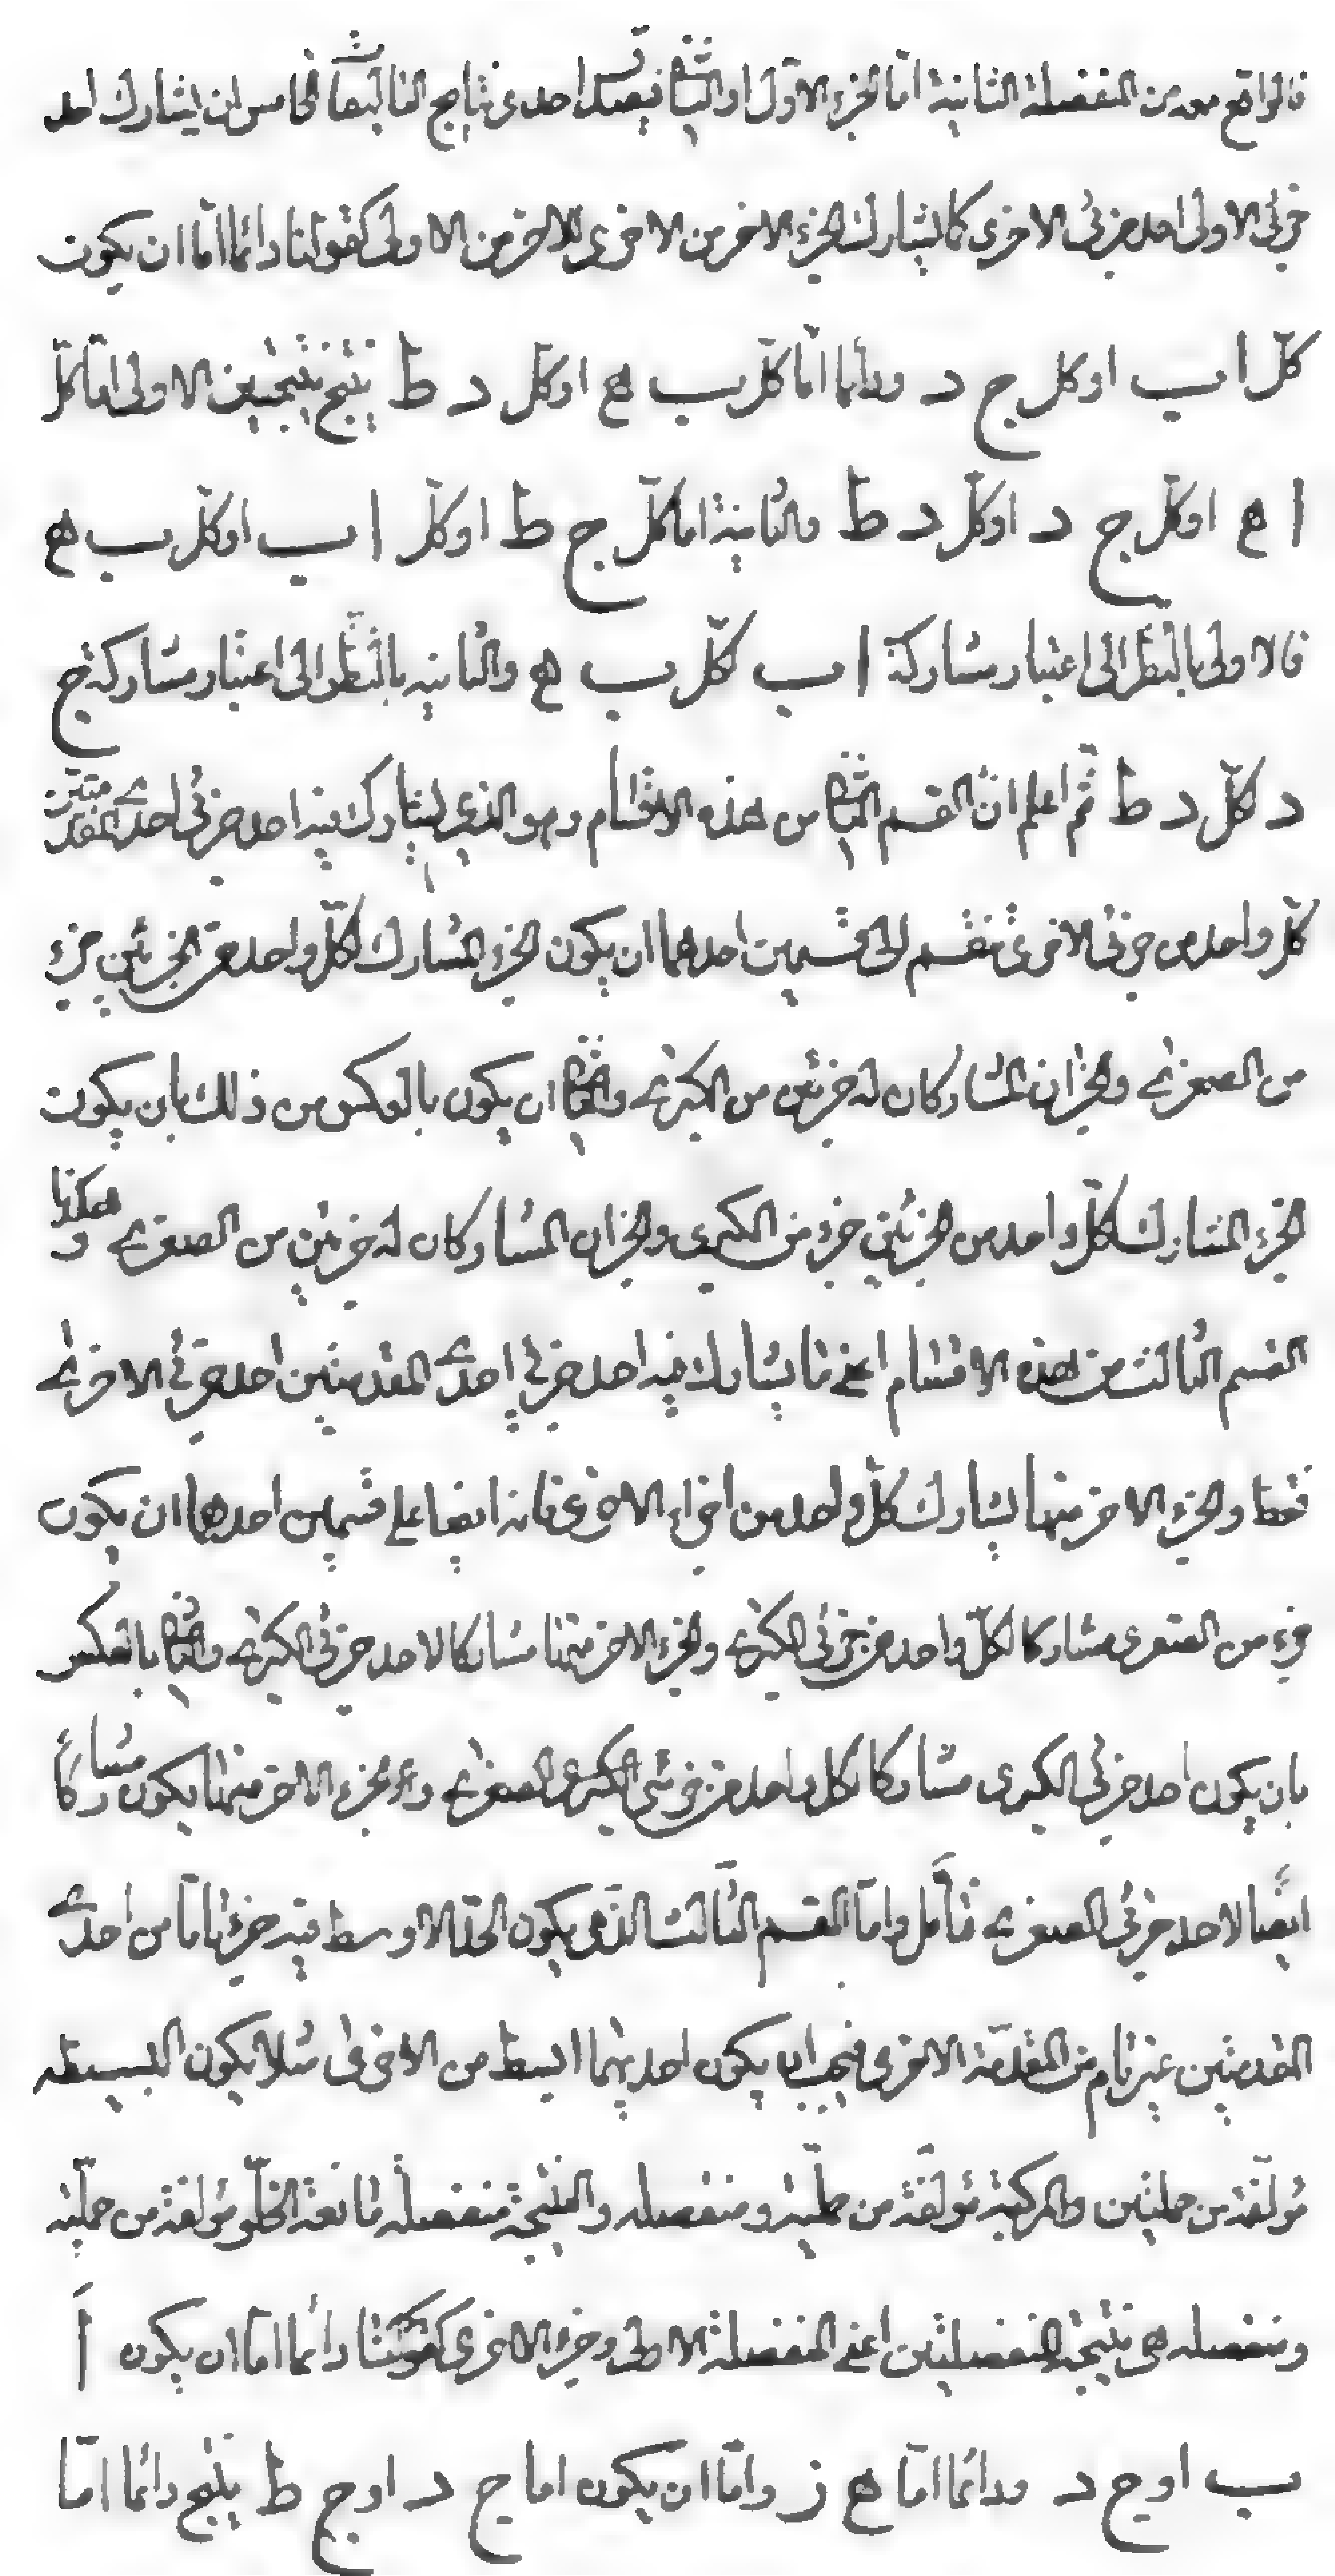 فالواقع معه من المنفصلة الثانية امّا الجزء الاوّل او الثانى فيصدق احدى نتايج التاليفات الخامس ان يشارك احد
جزئى الاولى احد جزئى الاخرى كما يشارك الجزء الاخر من الاخرى للاخر من الاولى كقولنا دائما امّا ان يكون
كلّ ا ب او كل ج د ودائما امّا كلّ ب ه او كلّ د ط ينتج نتيجتين الاولى امّا كلّ
ا ه او كلّ ج د او كلّ د ط والثانية اما كلّ ج ط او كلّ ا ب او كلّ ب ه
فالاولى بالنظر الى اعتبار مشاركة ا ب لكلّ ب ه والثانيه بالنّظر الى اعتبار مشاركة ج
د لكلّ د ط ثمّ اعلم انّ القسم الثانى من هذه الاقسام وهو الذى يشارك فيه احد جزئى احدى المقدمتين
كلّ واحد من جزئى الاخرى منقسم الى قسمين احدهما ان يكون الجزء المشارك لكلّ واحد من الجزئين جزء
من الصغرى والجزان المشاركان له جزئين من الكبرى والثانى ان يكون بالعكس من ذلك بان يكون
الجزء المشارك لكلّ واحد من الجزئين جزء من الكبرى والجزان المشاركان له جزئين من الصغرى وهكذا
القسم الثالث من هذه الاقسام اعنى ما يشارك فيه احد جزئى احدى المقدمتين احد جزئى الاخرى
فقط والجزء الاخر منها يشارك كلّ واحد من اجزاء الاخرى فانه ايضا على قسمين احدهما ان يكون
جزء من الصغرى مشاركا لكلّ واحد من جزئى الكبرى والجزء الاخر منها مشاركا لاحد جزئى الكبرى والثانى بالعكس
بان يكون احد جزئى الكبرى مشاركا لكل واحد من جزئى الصغرى والجزء الاخر منها يكون مشاركاً
ايضًا لاحد جزئى الصغرى فتأمل وامّا القسم الثالث الذى يكون الحدّ الاوسط فيه جزءا تامّا من احدى
المقدمتين غير تام من المقدّمة الاخرى فيجب ان يكون احديهما ابسط من الاخرى مثلا يكون البسيطه
مؤلّفة من حمليتين والمركبة مؤلّفة من حمليّة ومنفصله والنتيجة منفصلة مانعة الخلّو مؤلفة من حمليّة
ومنفصله هى نتيجة المنفصلتين اعنى المنفصلة الاولى وجزء الاخرى كقولنا دائما امّا ان يكون أ
ب او ج د ودائما امّا ه ز وامّا ان يكون اما ج د او ج ط ينتج دائما امّا